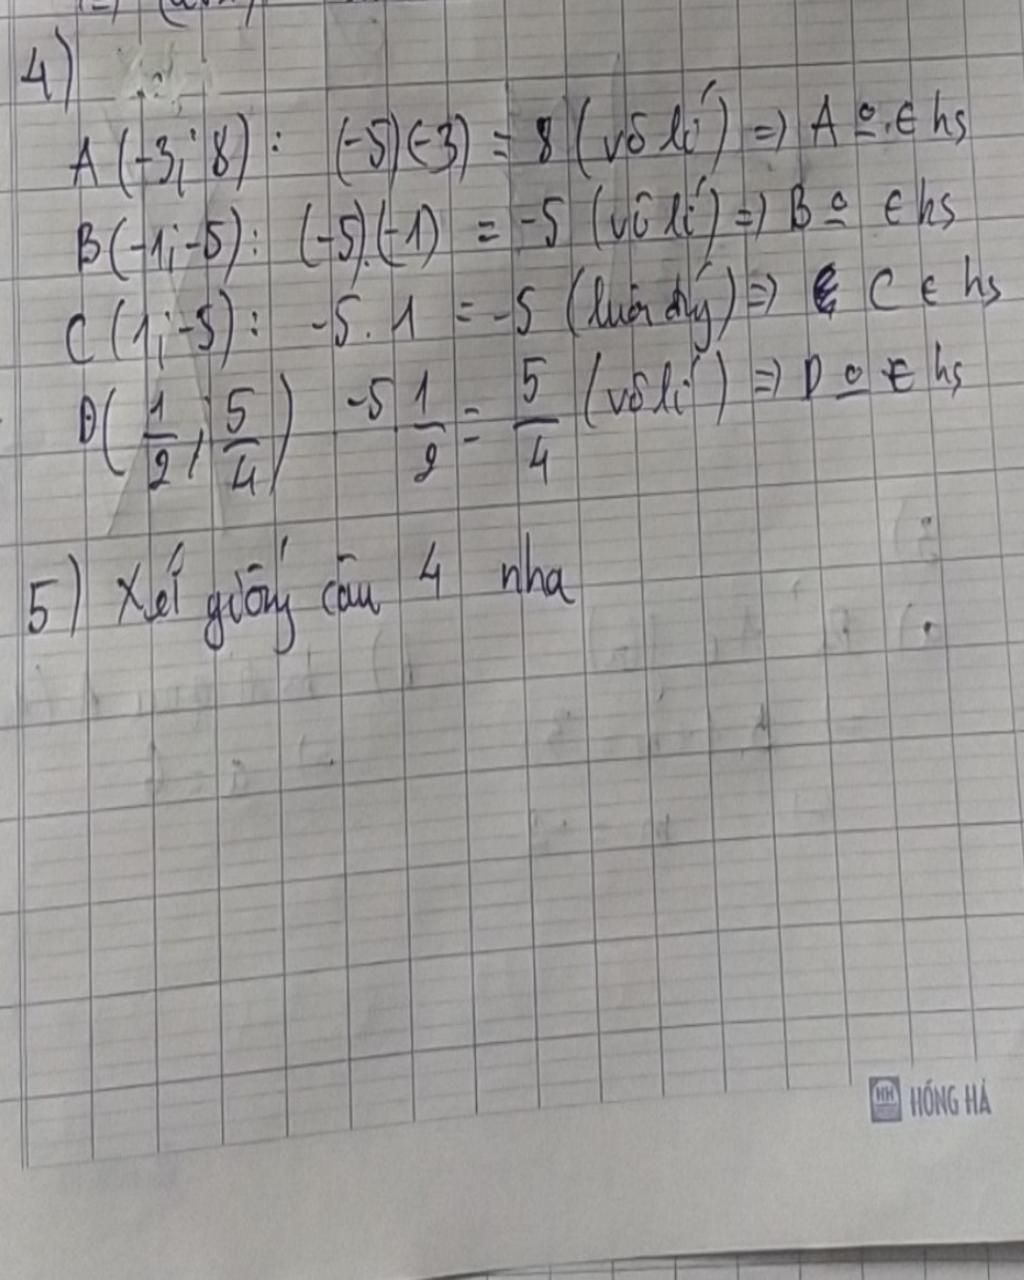 4)
A(-3; 8): (-5)(-3) = 8 (vô lí) => A o ∈ hs
B(-1; -5): (-5).(-1) = -5 (vô lí) => B o ∈ hs
C(1; -5): -5.1 = -5 (luôn đúng) => C ∈ hs
D(1/2; 5/4) -5 1/2 = 5/4 (vô lí) => D o ∈ hs
5) Xét giống câu 4 nha
HH HỒNG HÀ